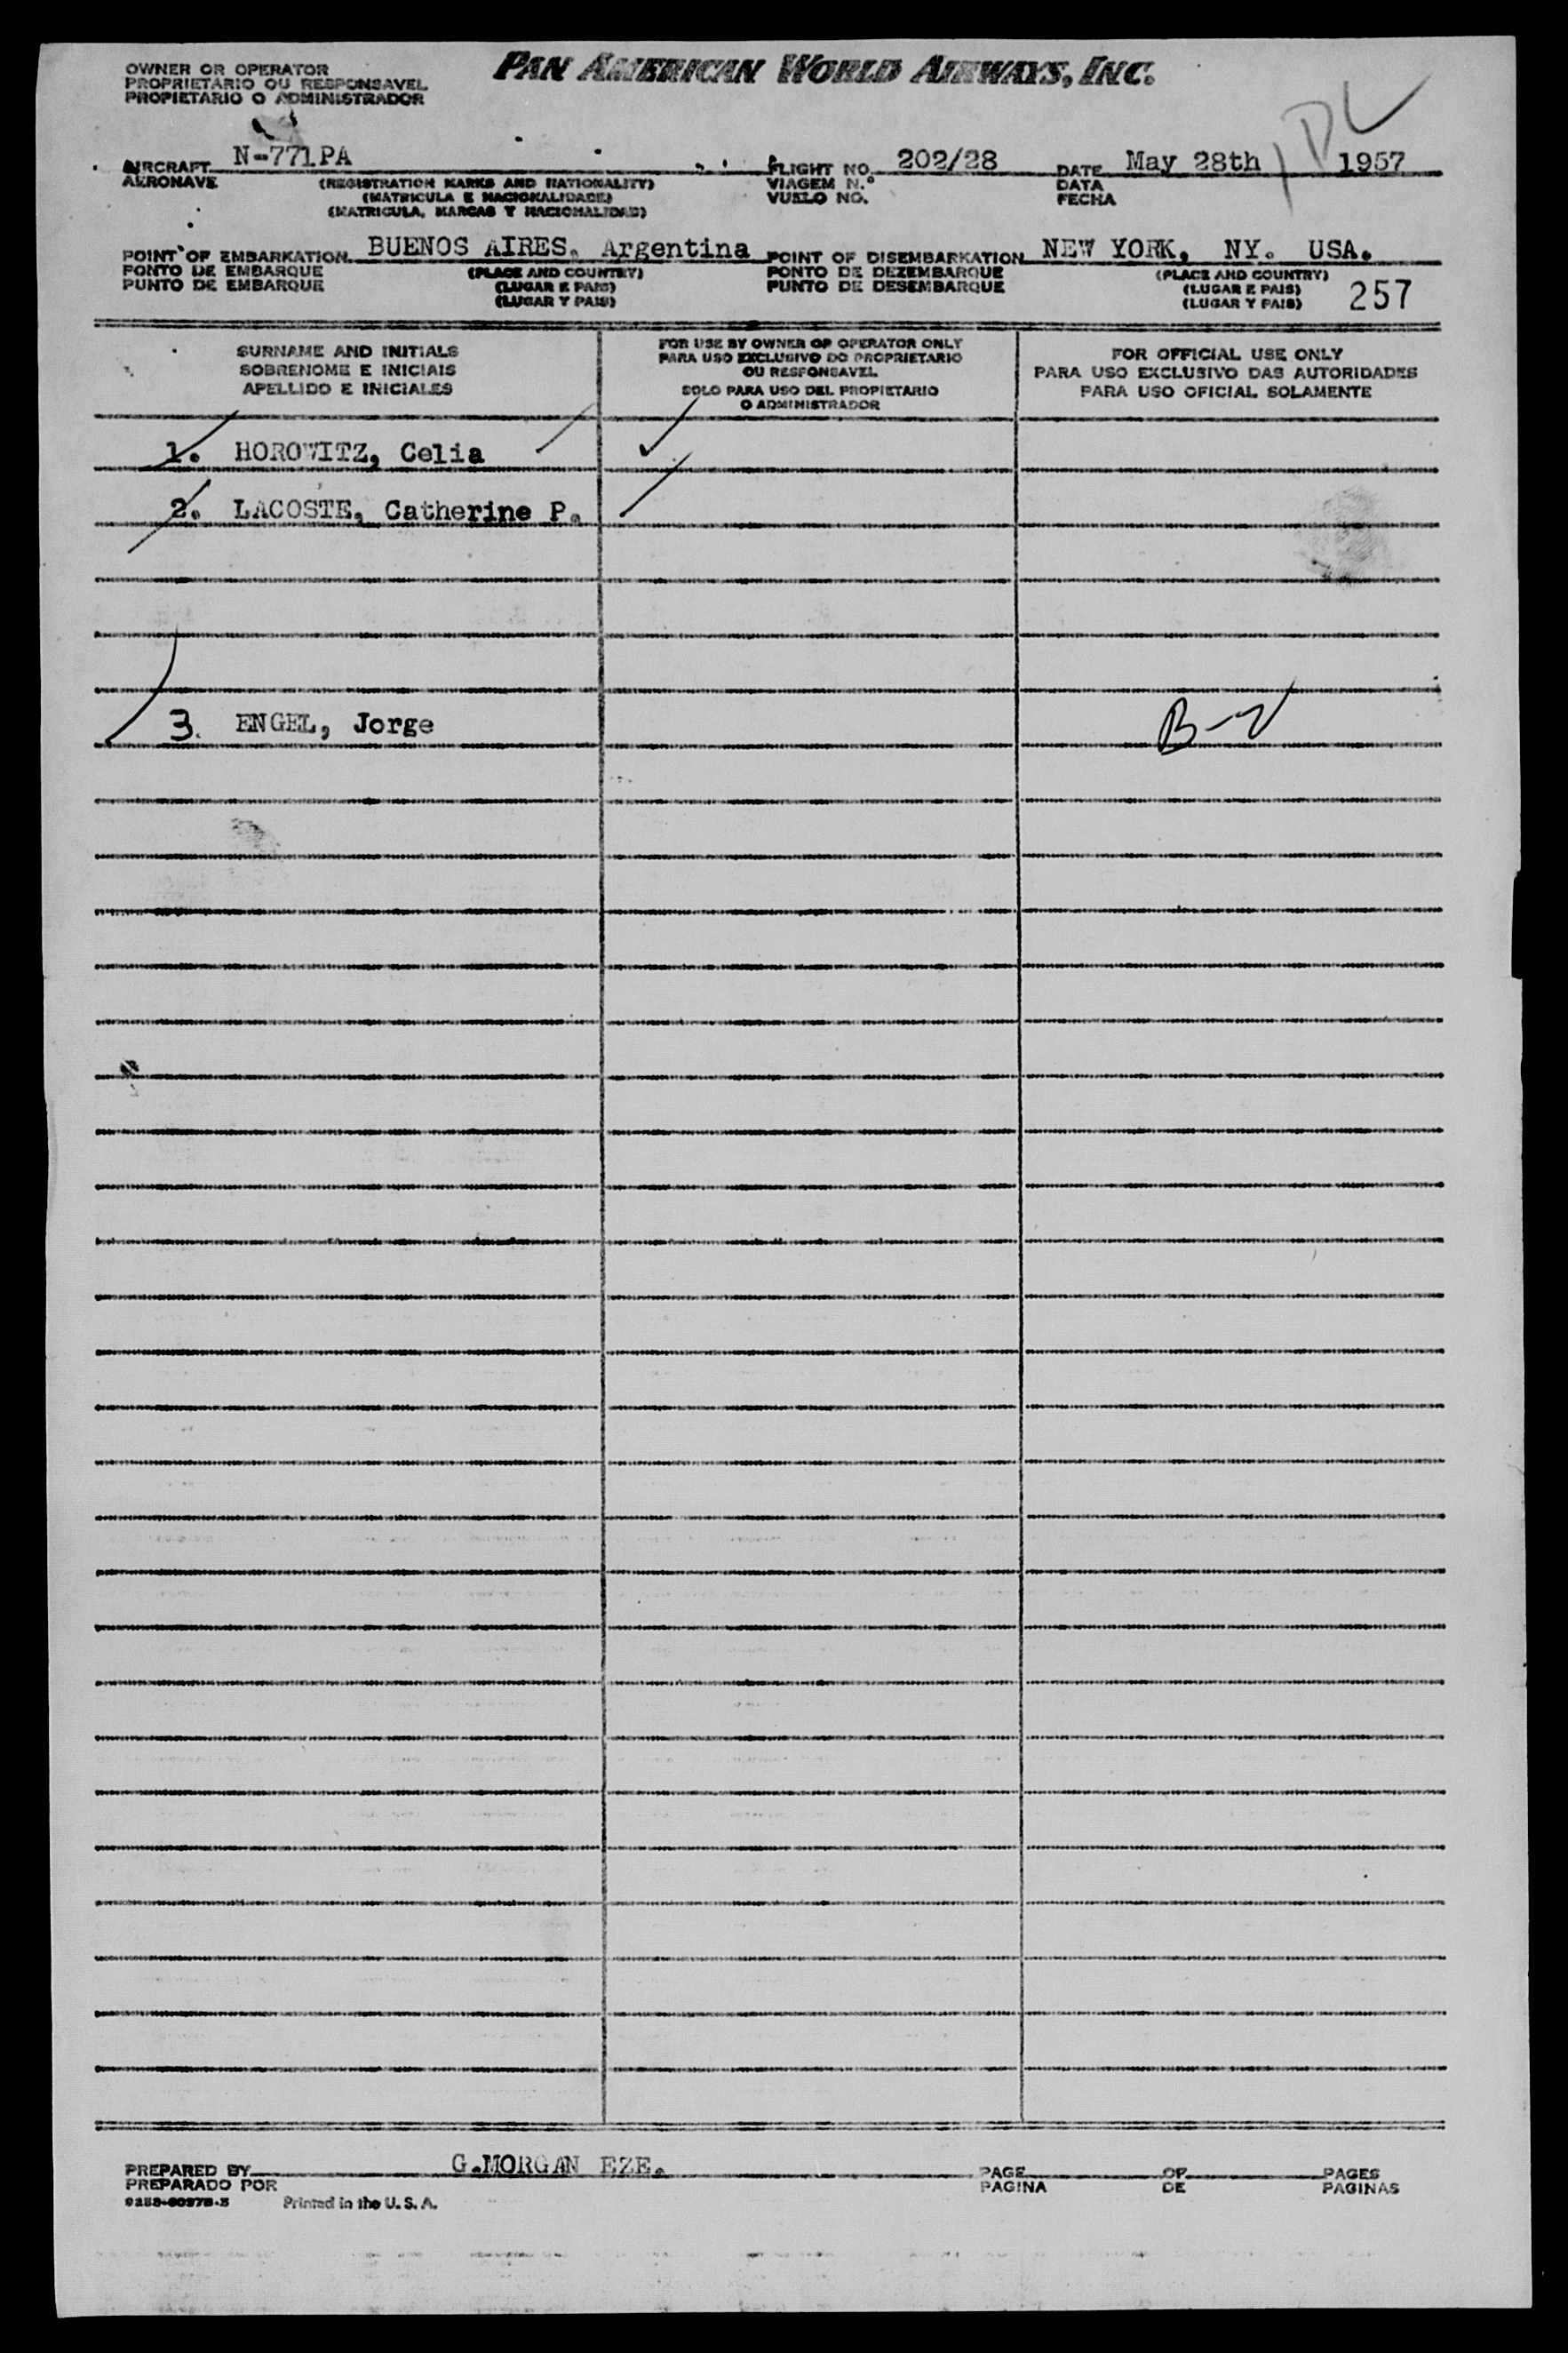 OWNER OR OPERATOR
PROPRIETARIO OU RESPONSAVEL
PROPIETARIO O ADMINISTRADOR
PAN AMERICAN WORLD AIRWAYS, INC.
AIRCRAFT N-771PA FLIGHT NO. 202/28 DATE May 28th 1957
AERONAVE (REGISTRATION MARKS AND NATIONALITY) VIAGEM N.° DATA
(MATRICULA E NACIONALIDADE) VUELO NO. FECHA
(MATRICULA, MARCAS Y NACIONALIDAD)
POINT OF EMBARKATION BUENOS AIRES. Argentina POINT OF DISEMBARKATION NEW YORK, NY. USA.
PONTO DE EMBARQUE (PLACE AND COUNTRY) PONTO DE DEZEMBARQUE (PLACE AND COUNTRY)
PUNTO DE EMBARQUE (LUGAR E PAIS) PUNTO DE DESEMBARQUE (LUGAR E PAIS)
(LUGAR Y PAIS) (LUGAR Y PAIS) 257
SURNAME AND INITIALS
SOBRENOME E INICIAIS
APELLIDO E INICIALES
FOR USE BY OWNER OR OPERATOR ONLY
PARA USO EXCLUSIVO DO PROPRIETARIO
OU RESPONSAVEL
SOLO PARA USO DEL PROPIETARIO
O ADMINISTRADOR
FOR OFFICIAL USE ONLY
PARA USO EXCLUSIVO DAS AUTORIDADES
PARA USO OFICIAL SOLAMENTE
1. HOROWITZ, Celia
2. LACOSTE, Catherine P.
3. ENGEL, Jorge B-2
PREPARED BY G.MORGAN EZE. PAGE OF PAGES
PREPARADO POR PAGINA DE PAGINAS
Printed in the U. S. A.